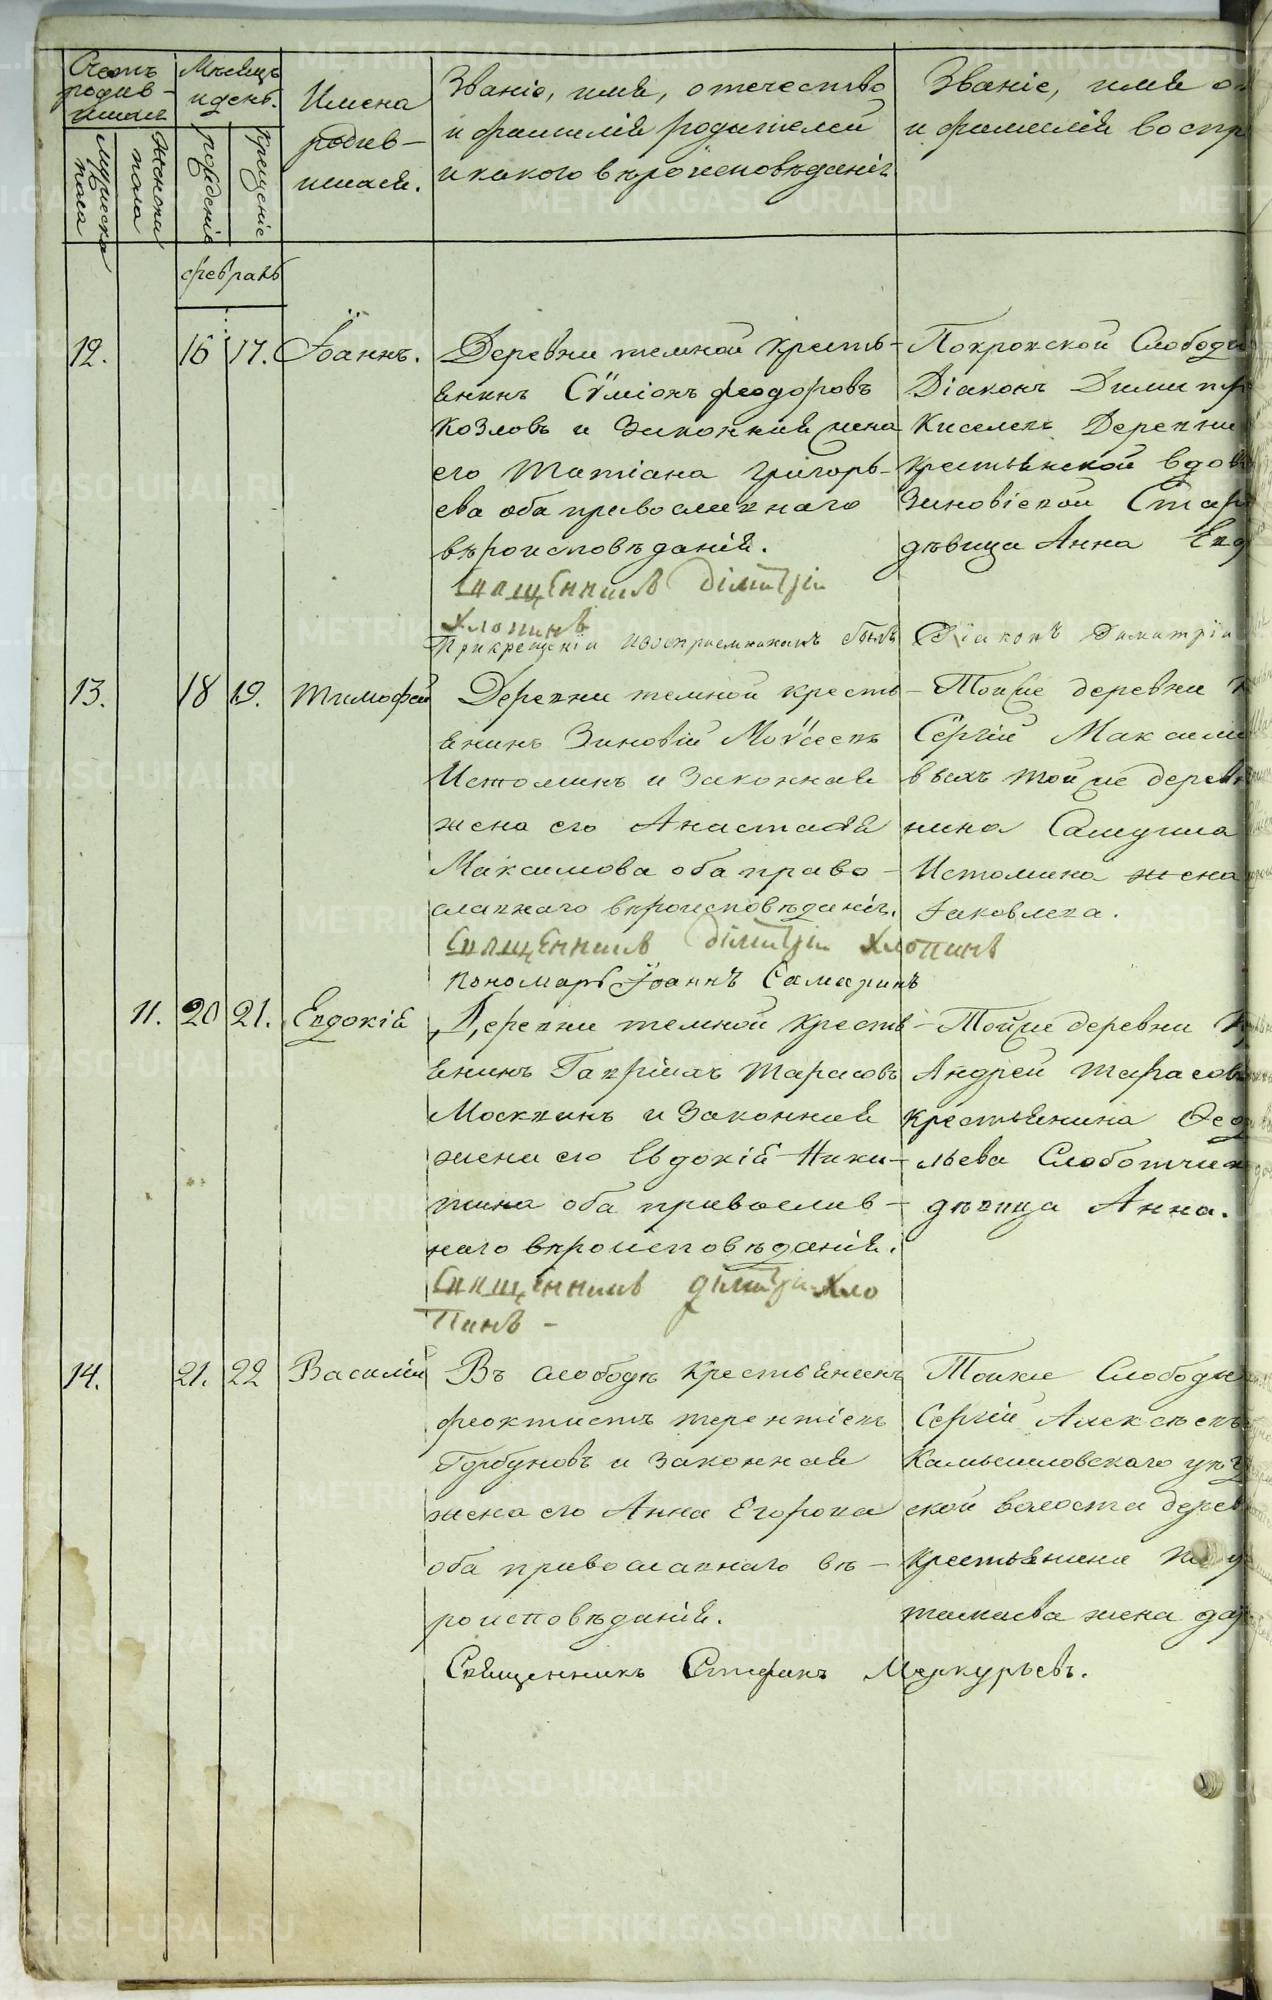 Счетъ родив-шихся
Мѣсяцъ и день.
Имена родив-шихся.
Званіе, имя, отечество и фамилія родителей и какого вѣроисповѣданія
Званіе, имя и фамилія воспр
мужеска пола
женска пола
рожденіе
крещеніе
февраль
12. 16 17. Іоаннъ.
Деревни темной кресть-
янинъ Сѵміонъ феодоровъ
Козловъ и законная жена
его Татіана григорь-
ева оба православнаго
вѣроисповѣданія.
Священникъ Дімитрій
Хлопинъ
При крещеніи и воспріемникомъ былъ Діаконъ Димитрій
Покровской Слободы
Діаконъ Димитр
Киселевъ Деревни
крестьянской вдов
Зиновіевой Стар
дѣвица Анна Евд
13. 18 19. Тимофей
Деревни темной кресть-
янинъ Зиновій Моѵсеевъ
Истоминъ и законная
жена его Анастасія
Максимова оба право-
славнаго вѣроисповѣданія.
Священникъ Дімитрій Хлопинъ
Пономарь Іоаннъ Самаринъ
Тойже деревни к
Сергій Максимо
выхъ тойже дерев
нина Самуила
Истомина жена
Іаковлева.
11. 20 21. Евдокія
Деревни темной кресть-
янинъ Гавріилъ Тарасовъ
Москвинъ и законная
жена его Евдокія Ники-
тина оба православ-
наго вѣроисповѣданія.
Священникъ Дімитрій Хло
пинъ -
Тойже деревни к
Андрей Тарасовъ
крестьянина Ѳед
льева Слоботчик
дѣвица Анна.
14. 21. 22 Василій
Въ слободѣ крестьянинъ
феоктистъ терентіевъ
Горбуновъ и законная
жена его Анна Егорова
оба православнаго вѣ-
роисповѣданія.
Священникъ Стефанъ Меркурьевъ.
Тойже Слободы
Сергій Алексѣевъ
Камышловскаго уѣз
ской волости дерев
крестьянина
жена дар
METRIKI.GASO-URAL.RU